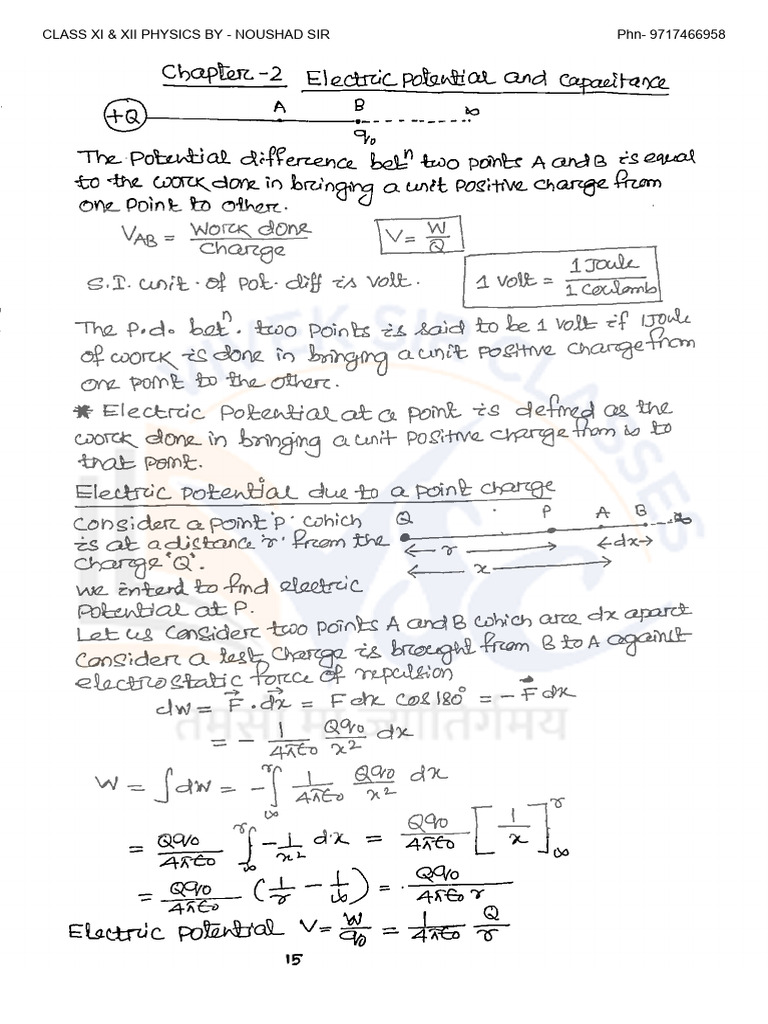 CLASS XI & XII PHYSICS BY - NOUSHAD SIR Phn- 9717466958
Chapter-2 Electric potential and capacitance
+Q A B ∞
q₀
The Potential difference betⁿ two points A and B is equal
to the work done in bringing a unit positive charge from
one point to other.
V_AB = Work done / Charge V = W/Q
S.I. unit of pot. diff is volt. 1 volt = 1 Joule / 1 Coulomb
The p.d. betⁿ. two points is said to be 1 volt if 1 Joule
of work is done in bringing a unit positive charge from
one point to the other.
* Electric Potential at a point is defined as the
work done in bringing a unit positive charge from ∞ to
that point.
Electric potential due to a point charge
Consider a point 'P' which
is at a distance 'r' from the
charge 'Q'.
Q P A B ∞
r dx
x
we intend to find electric
potential at P.
Let us consider two points A and B which are dx apart
Consider a test charge is brought from B to A against
electrostatic force of repulsion
dw = F⃗ . dx⃗ = F dx cos 180° = - F⃗ dx
= - 1/4πε₀ Qq₀/x² dx
W = ∫dw = - ∫_∞^r 1/4πε₀ Qq₀/x² dx
= Qq₀/4πε₀ ∫_∞^r - 1/x² dx = Qq₀/4πε₀ [1/x]_∞^r
= Qq₀/4πε₀ (1/r - 1/∞) = Qq₀/4πε₀ r
Electric potential V = W/q₀ = 1/4πε₀ Q/r
15
VIVEK SIR CLASSES
VSC
तमसो मा ज्योतिर्गमय